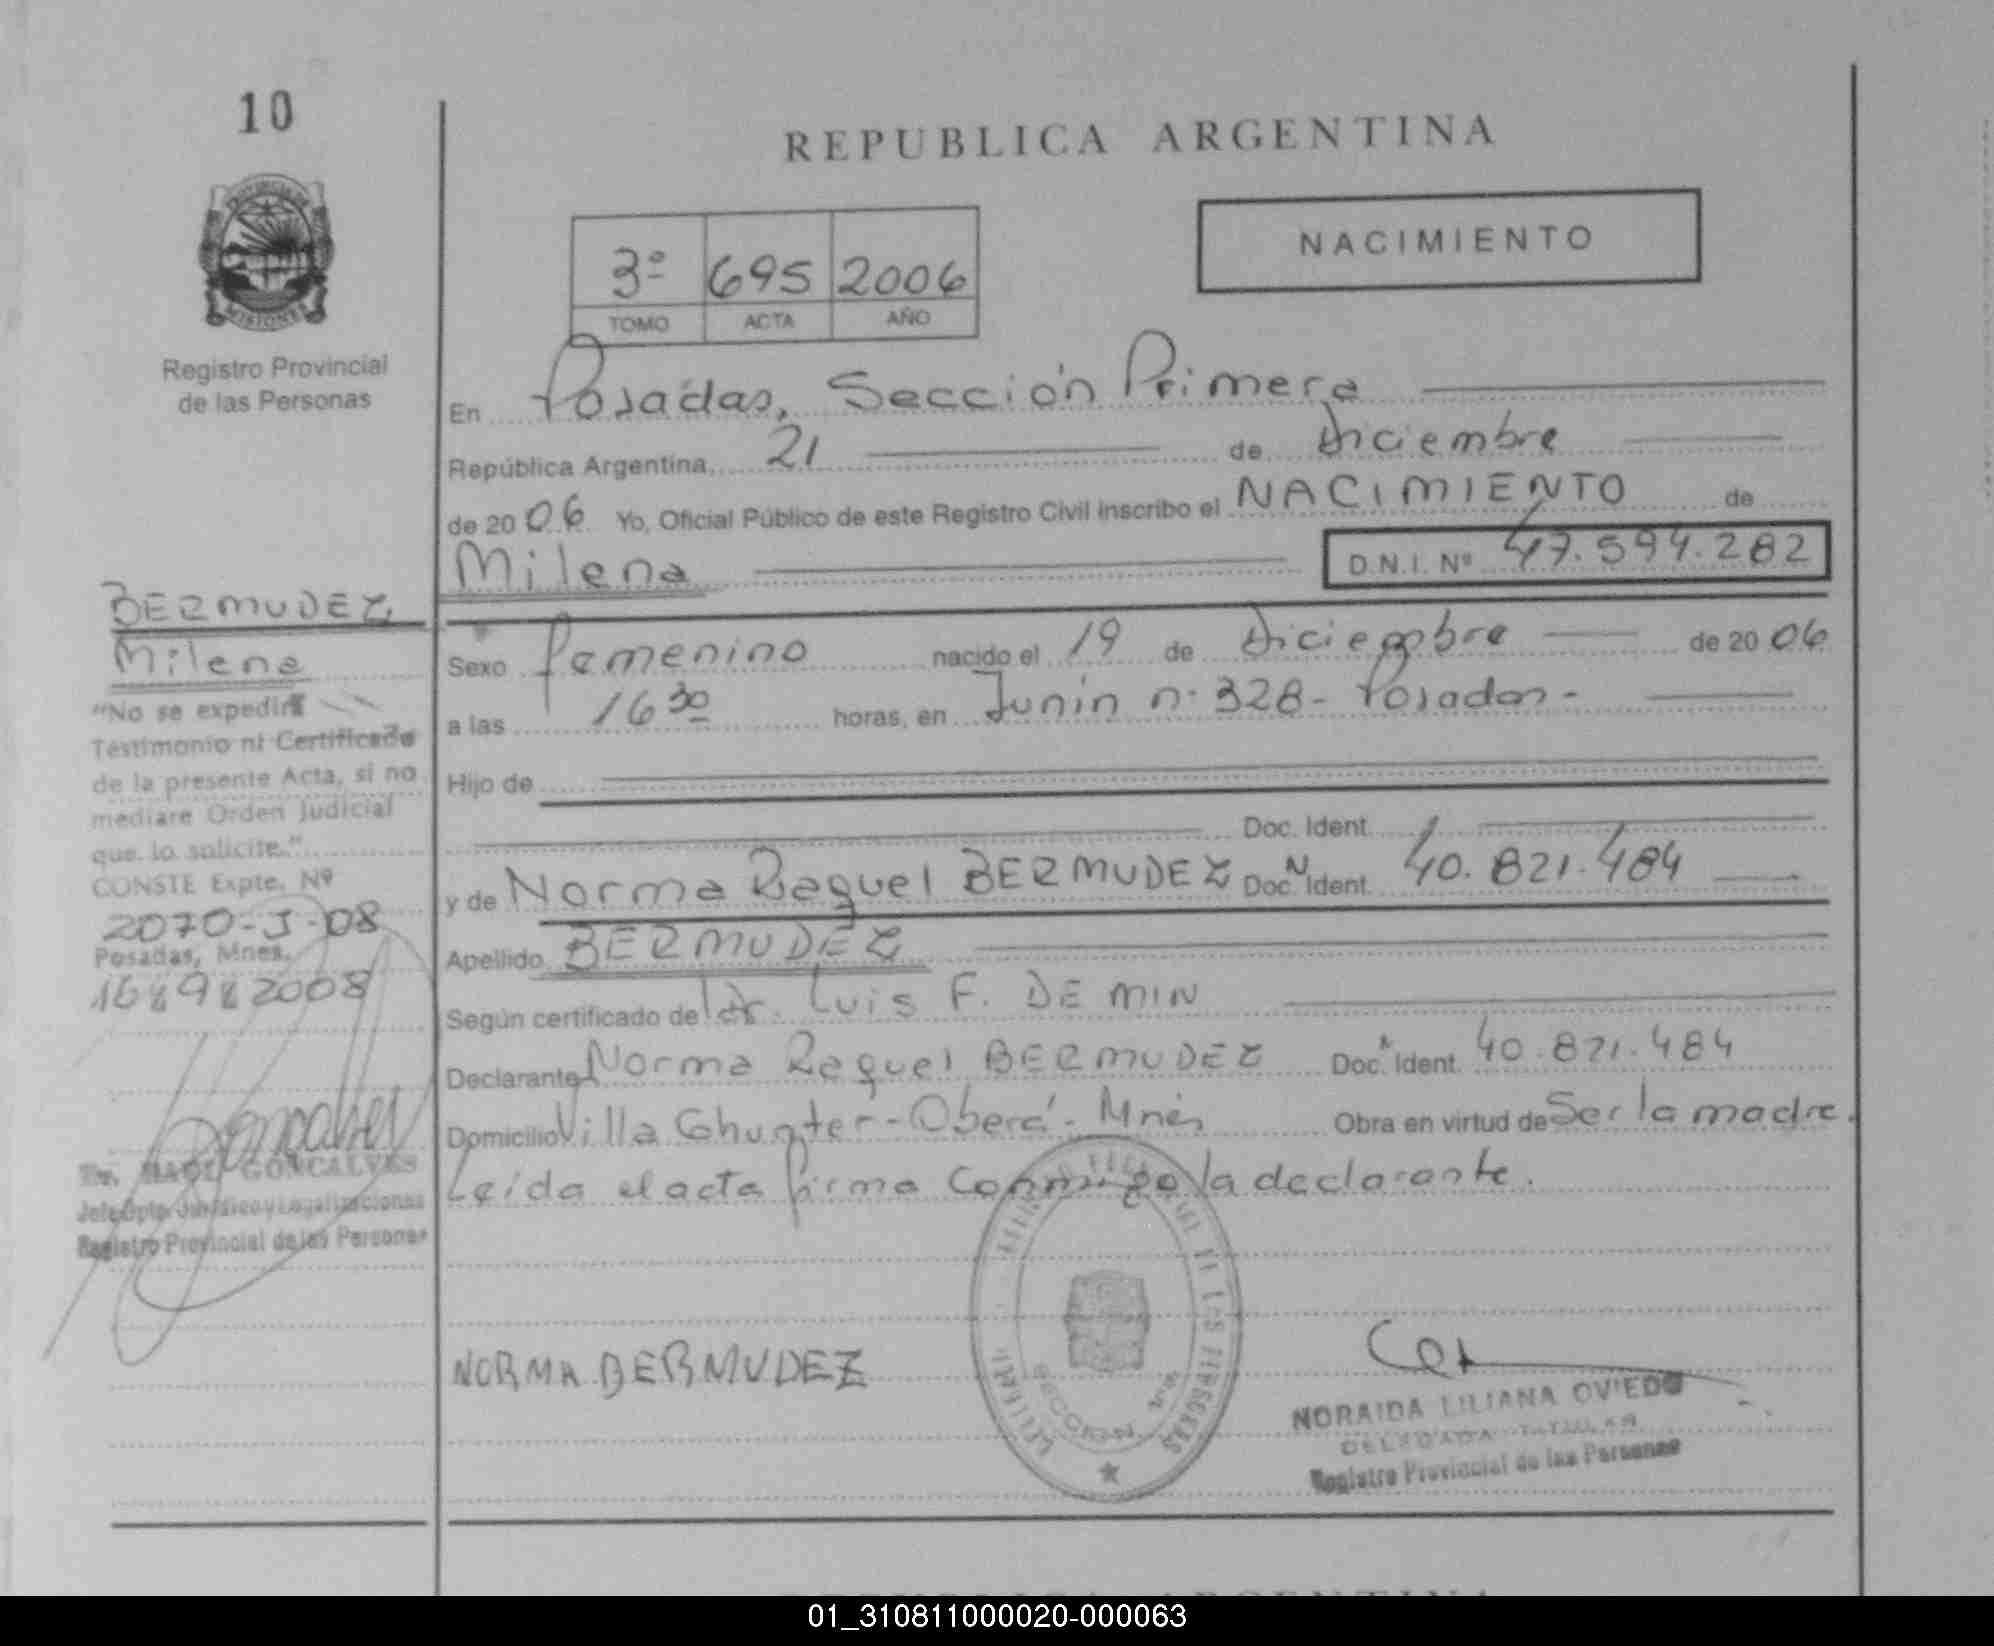 10
REPUBLICA ARGENTINA
MISIONES
Registro Provincial
de las Personas
NACIMIENTO
3º 695 2006
TOMO ACTA AÑO
En Posadas, Sección Primera
República Argentina, 21 de Diciembre
de 2006 Yo, Oficial Público de este Registro Civil inscribo el NACIMIENTO de
Milena D.N.I. Nº 47.594.282
Sexo femenino nacido el 19 de Diciembre de 2006
a las 16 30 horas, en Junín nº 328 - Posadas -
Hijo de
Doc. Ident.
y de Norma Raquel BERMUDEZ Doc. N Ident. 40.821.484
Apellido BERMUDEZ
Según certificado del dr. Luis F. DE MIN
Declarante Norma Raquel BERMUDEZ Doc. Ident. 40.821.484
Domicilio Villa - Oberá - Mnes Obra en virtud de Ser la madre.
Leída el acta firma conmigo la declarante.
NORMA BERMUDEZ
SECCION 1ra
NORAIDA LILIANA OVIEDO
DELEGADA TITULAR
Registro Provincial de las Personas
BERMUDEZ
Milena
"No se expedirá
Testimonio ni Certificado
de la presente Acta, si no
mediare Orden Judicial
que lo solicite."
CONSTE Expte. Nº
2070-J-08
Posadas, Mnes.
16 9 2008
GONCALVES
Jefe Dpto. Jurídico y Legalizaciones
Registro Provincial de las Personas
01_310811000020-000063